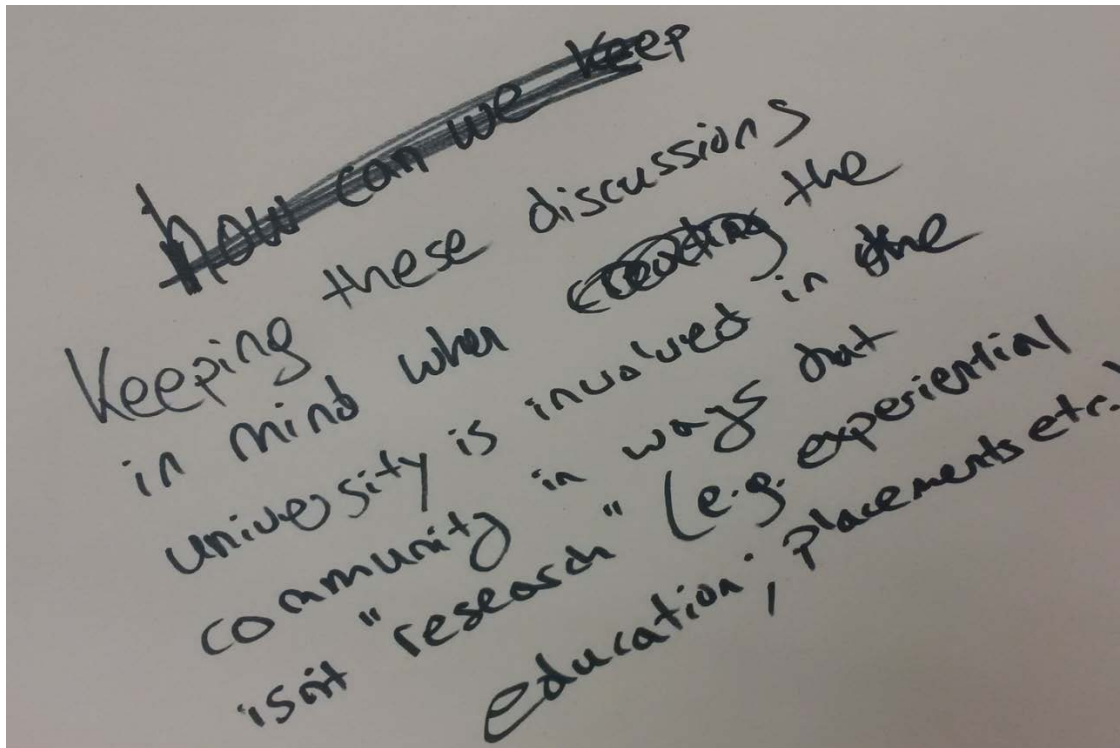 how can we keep
Keeping these discussions
in mind when creating the
university is involved in the
community in ways that
isn't "research" (e.g. experiential
education; placements etc.)